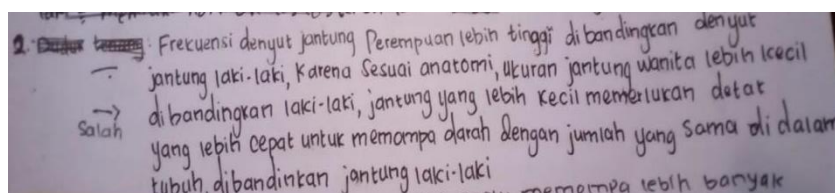 2. : Frekuensi denyut jantung Perempuan lebih tinggi dibandingkan denyut
jantung laki-laki, Karena Sesuai anatomi, ukuran jantung wanita lebih kecil
→ Salah
dibandingkan laki-laki, jantung yang lebih kecil memerlukan detat
yang lebih cepat untuk memompa darah dengan jumlah yang Sama di dalam
tubuh dibandinkan jantung laki-laki
memompa lebih banyak